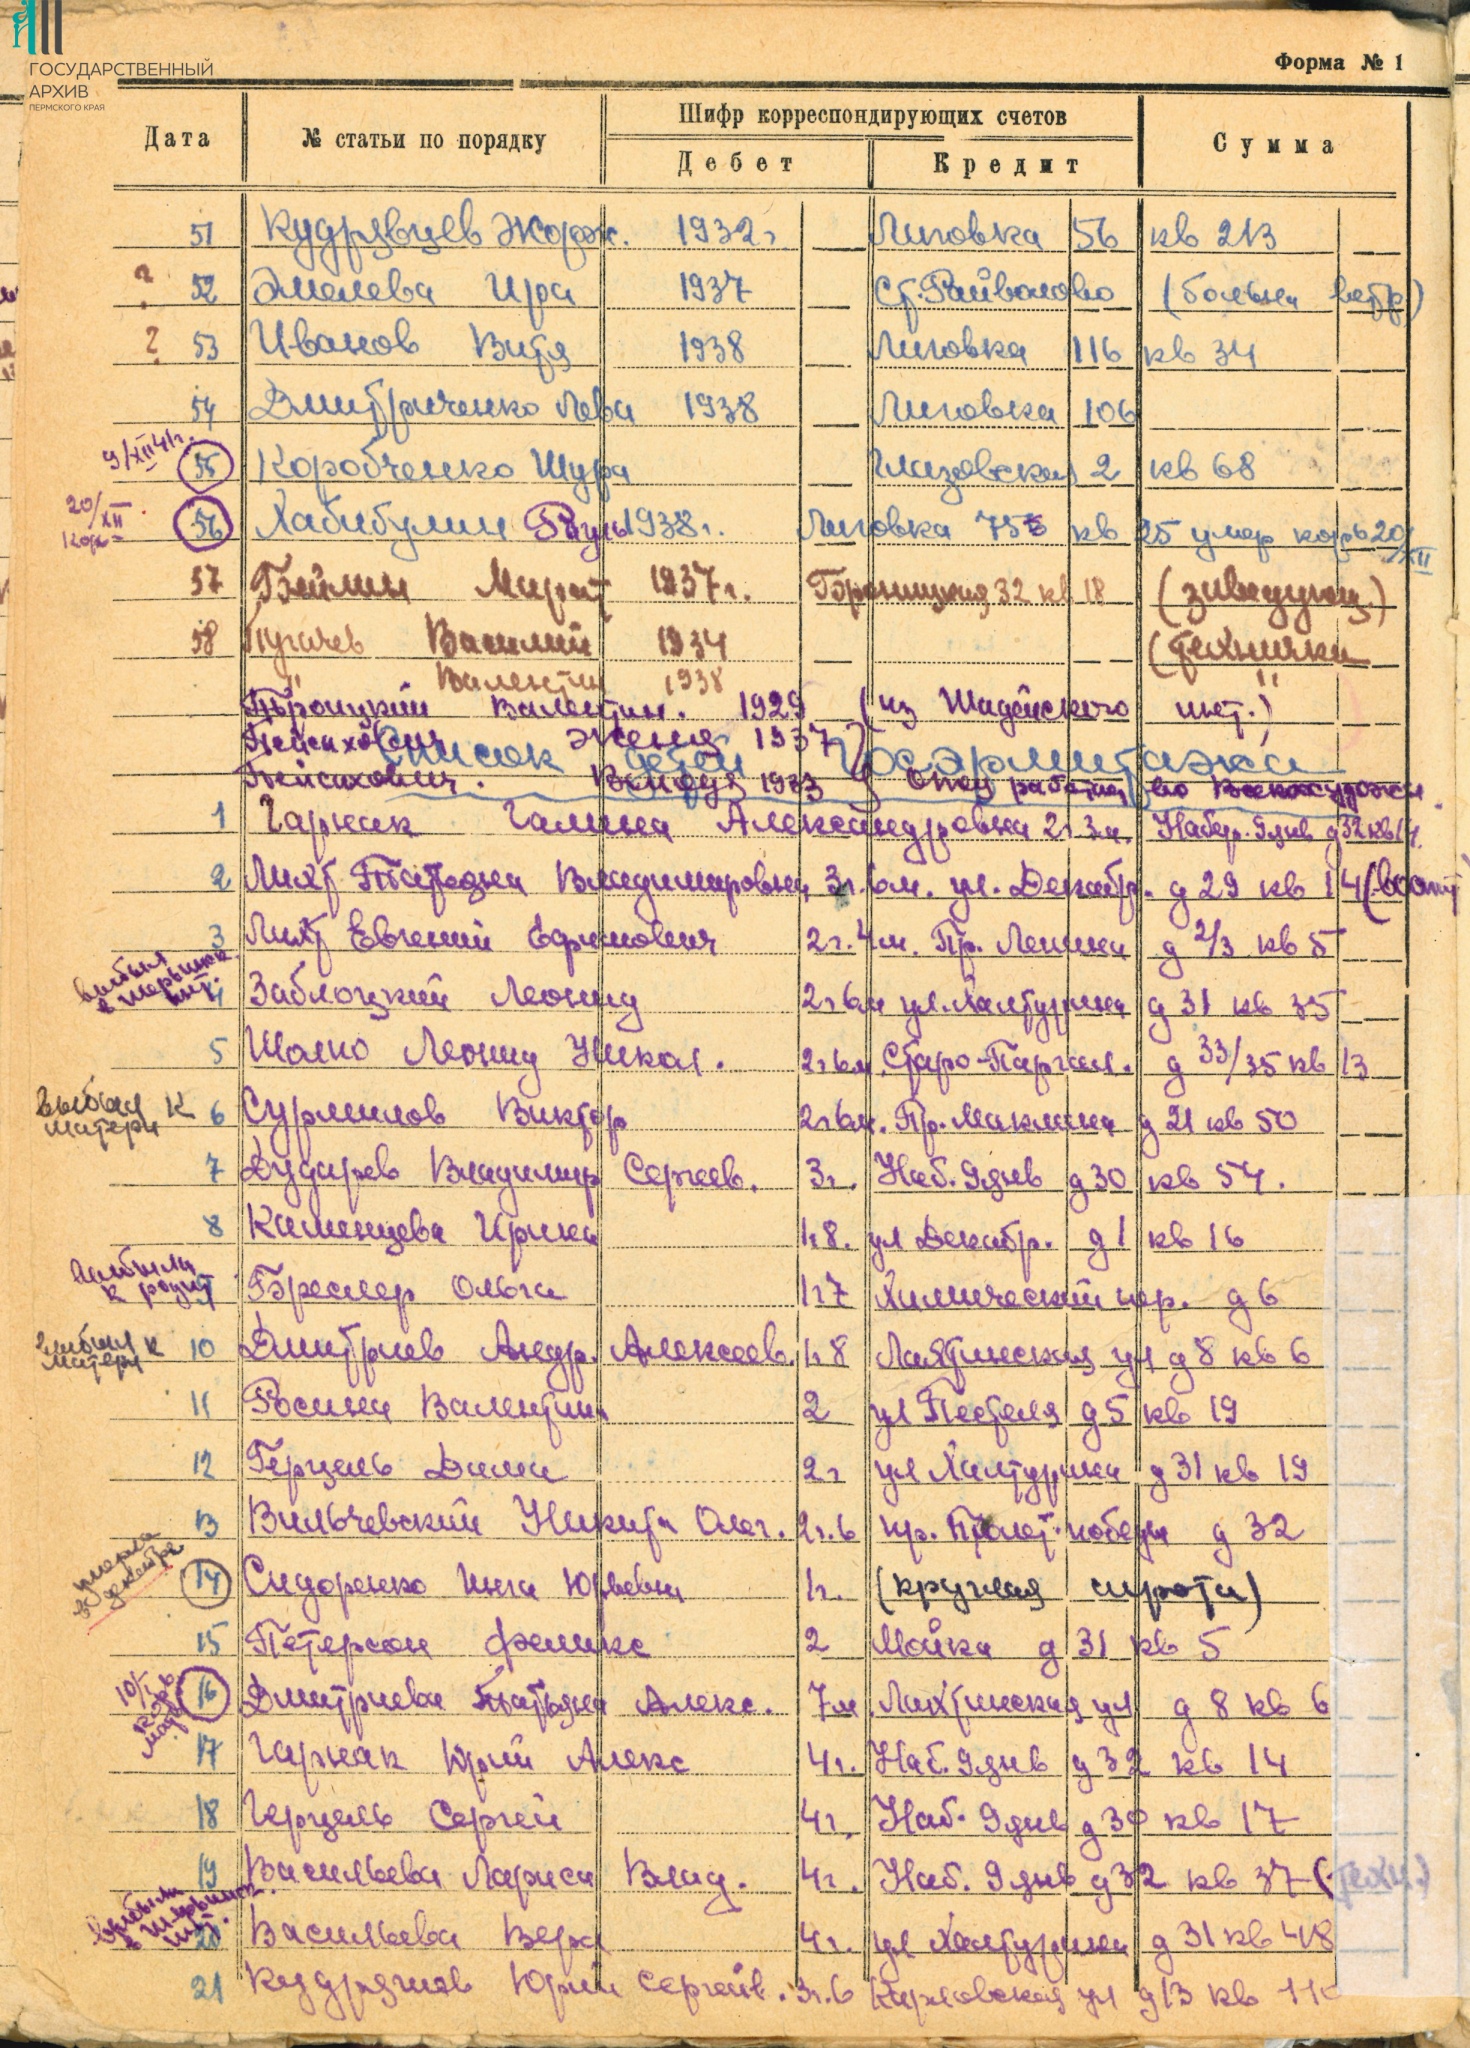 ГОСУДАРСТВЕННЫЙ
АРХИВ
ПЕРМСКОГО КРАЯ
Форма № 1
Дата № статьи по порядку Шифр корреспондирующих счетов Сумма
Дебет Кредит
51 Кудрявцев Жорж. 1932г Лиговка 56 кв 213
? 52 Эмелева Ира 1937 Ст. Райволово (больна ветр)
? 53 Иванов Витя 1938 Лиговка 116 кв 34
54 Дмитриченко Лева 1938 Лиговка 106
9/XII 41г. 55 Коробченко Шура Глазовская 2 кв 68
20/XII корь 56 Хабибулин Рауль 1938г. Лиговка 75 кв 25 умер корь 20/XII
57 Бейлин Марат 1937г. Бронницкая 32 кв 18 (заведующ)
58 Пугачев Василий 1934 (технички
" Валентин 1938 "
Троицкий Валентин. 1929 (из Шадейского инт.)
Пейсахович Женя 1937
Список детей Гос. Эрмитажа
Пейсахович. 1933 Отец работает во
1 Гарнак Галина Александровна 2г 3м. Набер. 9 янв д 32 кв 14
2 Лихт Татьяна Владимировна 3г. 6м. ул. Декабр. д 29 кв 14
3 Лихт Евгений Ефимович 2г. 4м. Пр. Ленина д 2/3 кв 5
выбыл в инт.
4 Заблоцкий Леонид 2г 6м ул. Халтурина д 31 кв 35
5 Шалло Леонид Никол. 2г 6м. Старо-Паргол. д 33/35 кв 13
выбыл к матери 6 Сурмилов Виктор 2г 6м. Пр. Маклина д 21 кв 50
7 Дударев Владимир Сергеев. 3г. Наб. 9 янв д 30 кв 54.
8 Каменцева Ирина 1г 8. ул Декабр. д 1 кв 16
выбыла к родит 9 Бреслер Ольга 1г 7 Химический пер. д 6
выбыл к матери 10 Дмитриев Андр. Алексеев. 1г 8 Лахтинская ул д 8 кв 6
11 Росина Валентина 2 ул Пестеля д 5 кв 19
12 Герцель Дима 2г ул Халтурина д 31 кв 19
13 Вильчевский Никита Олег. 2г. 6 пр. Пролет. победы д 32
умерла декабря 14 Сидоренко Инга Юрьевна 1г. (круглая сирота)
15 Петерсон Феликс 2 Мойка д 31 кв 5
10/I корь 16 Дмитриева Татьяна Алекс. 7м. Лахтинская ул д 8 кв 6
17 Гарнак Юрий Алекс 4г. Наб. 9 янв д 32 кв 14
18 Герцель Сергей 4г. Наб. 9 янв д 30 кв 17
19 Васильева Лариса Влад. 4г. Наб. 9 янв д 32 кв 37 (техн.)
выбыла в инт.
20 Васильева Вера 4г. ул Халтурина д 31 кв 48
21 Кудряшов Юрий Сергеев. 3г. 6 Кирховская ул д 13 кв